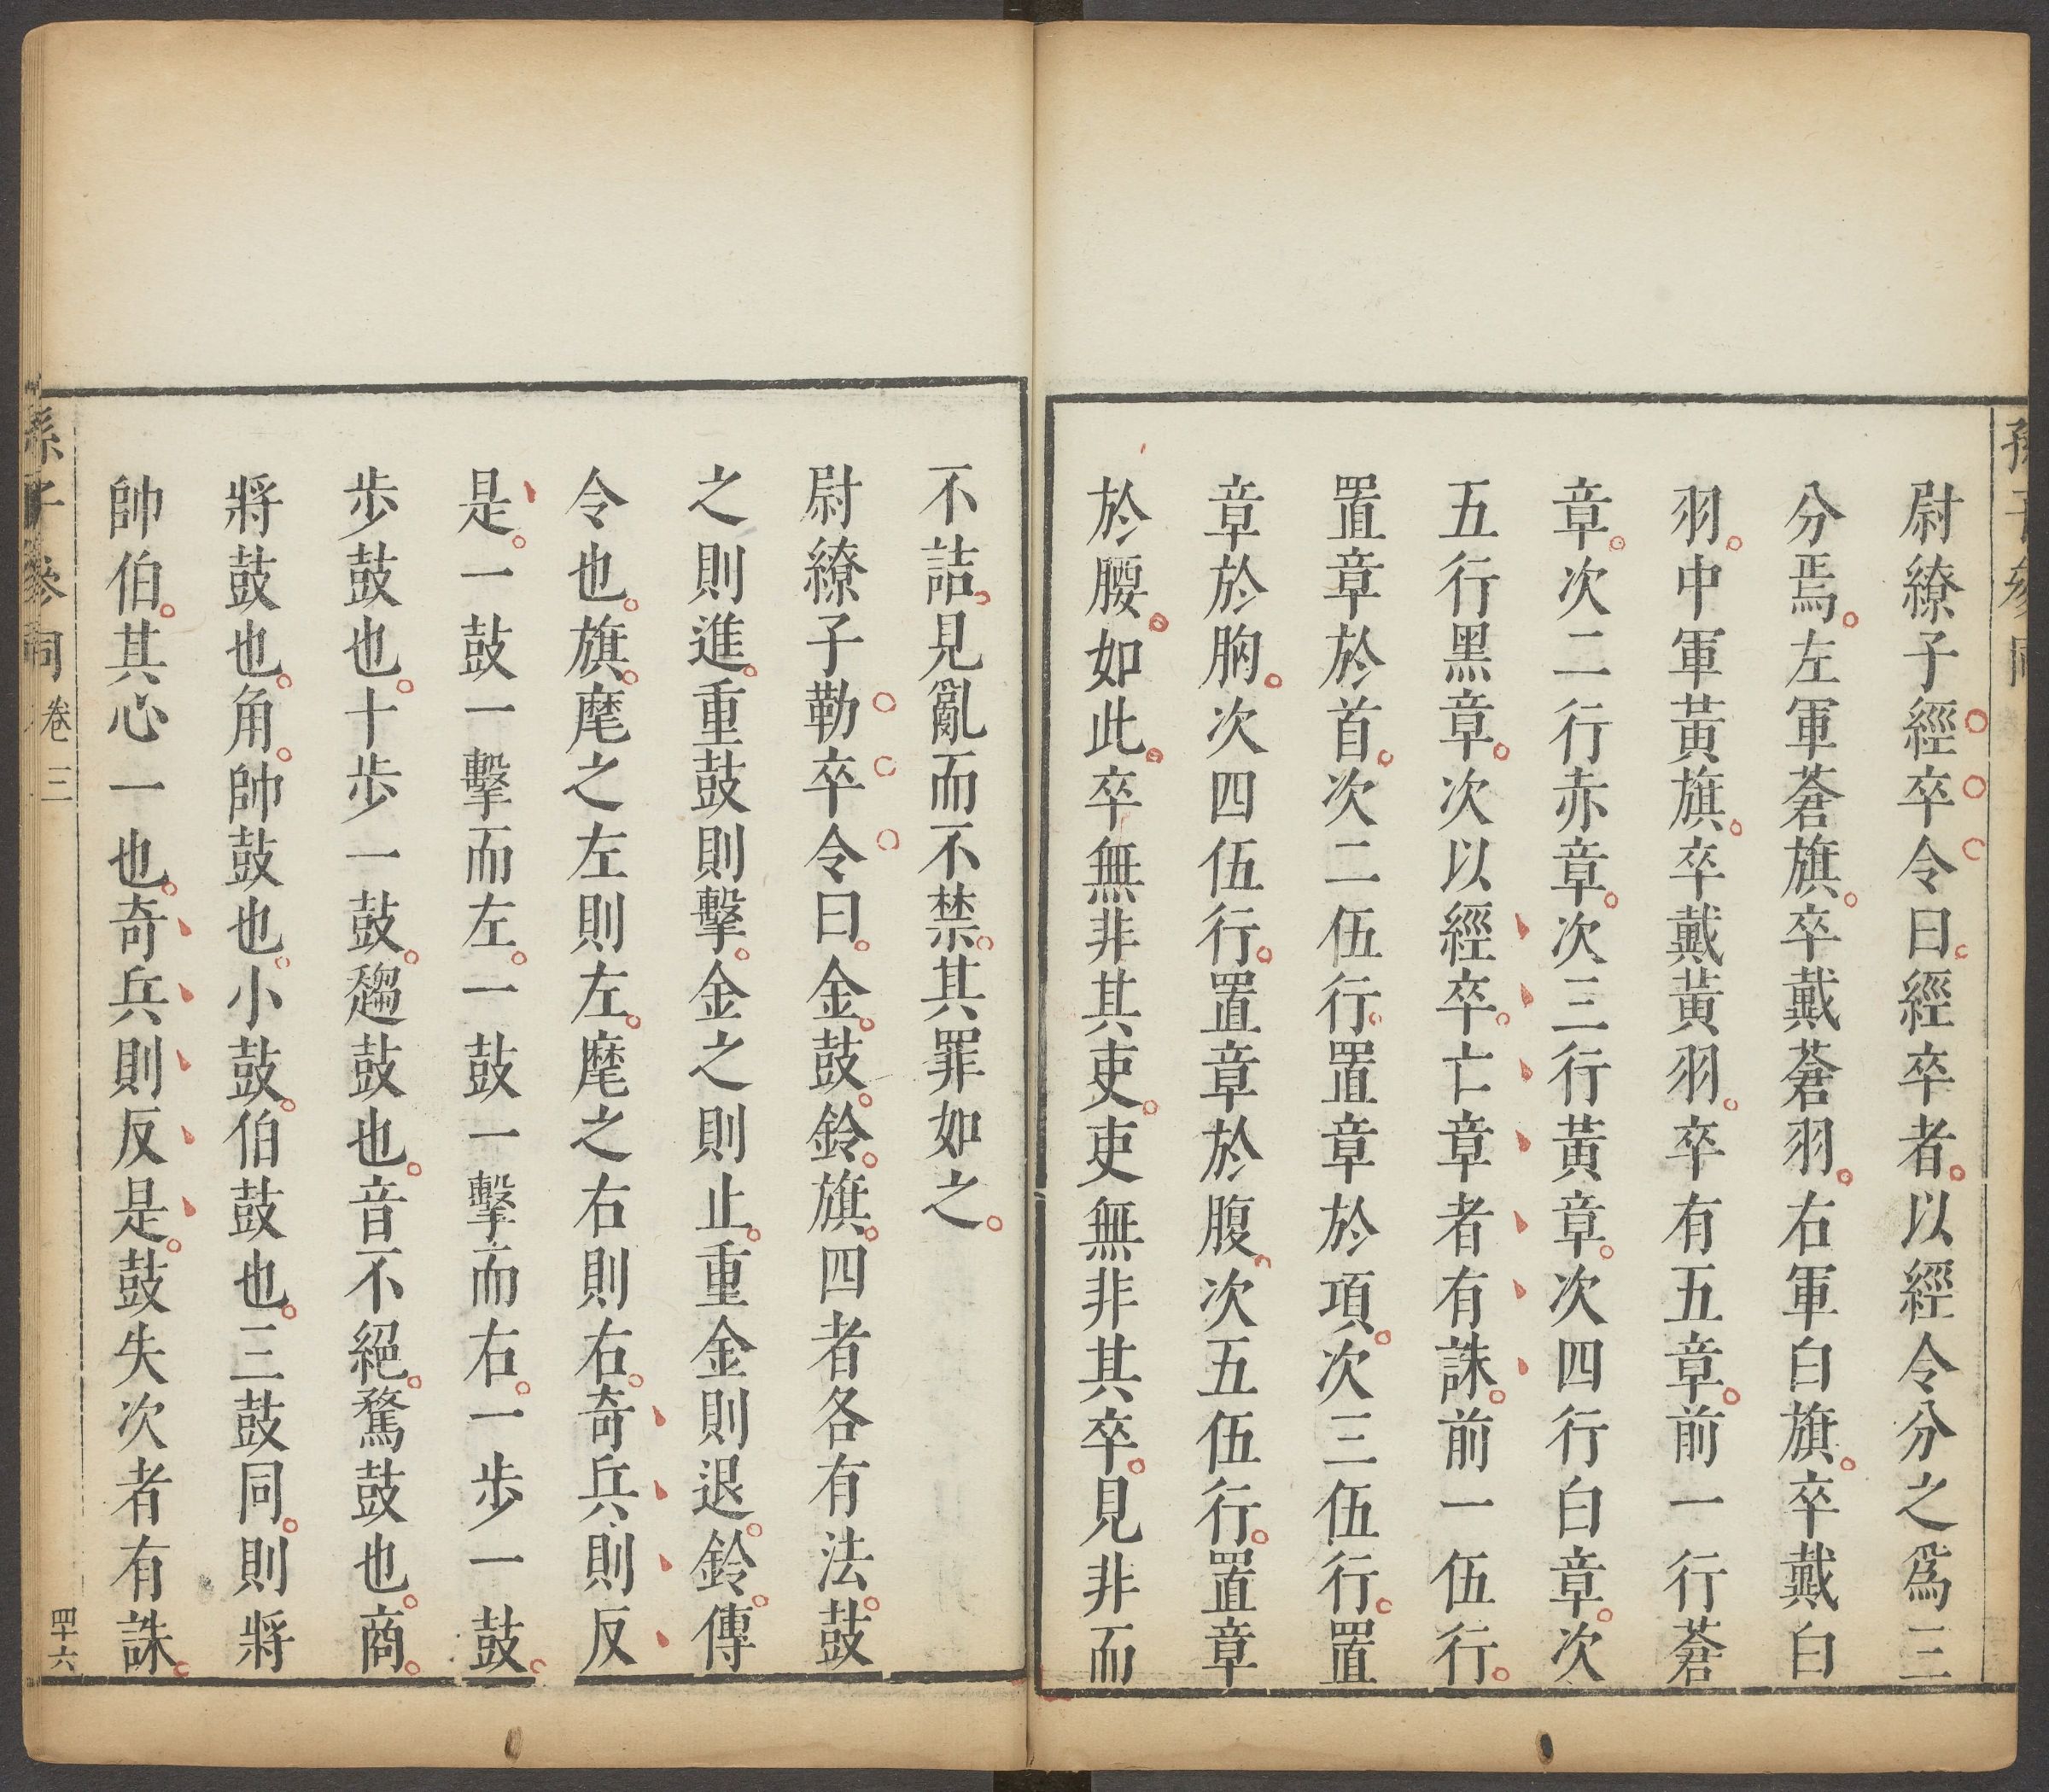 尉繚子經卒令曰經卒者以經令分之爲三
分焉左軍蒼旗卒戴蒼羽右軍白旗卒戴白
羽中軍黃旗卒戴黃羽卒有五章前一行蒼
章次二行赤章次三行黃章次四行白章次
五行黑章次以經卒亡章者有誅前一伍行
置章於首次二伍行置章於項次三伍行置
章於胸次四伍行置章於腹次五伍行置章
於腰如此卒無非其吏吏無非其卒見非而
不詰見亂而不禁其罪如之
尉繚子勒卒令曰金鼓鈴旗四者各有法鼓
之則進重鼓則擊金之則止重金則退鈴傳
令也旗麾之左則左麾之右則右奇兵則反
是一鼓一擊而左一鼓一擊而右一步一鼓
步鼓也十步一鼓趨鼓也音不絕騖鼓也商
將鼓也角帥鼓也小鼓伯鼓也三鼓同則將
帥伯其心一也奇兵則反是鼓失次者有誅
孫子參同 卷三
四十六